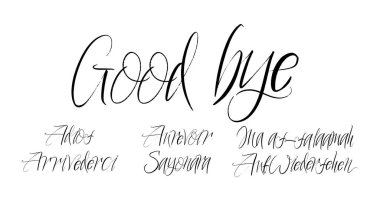 Good bye
Adios Aurevoir Ma as-salaamah
Arrivederci Sayonara Auf Wiedersehen